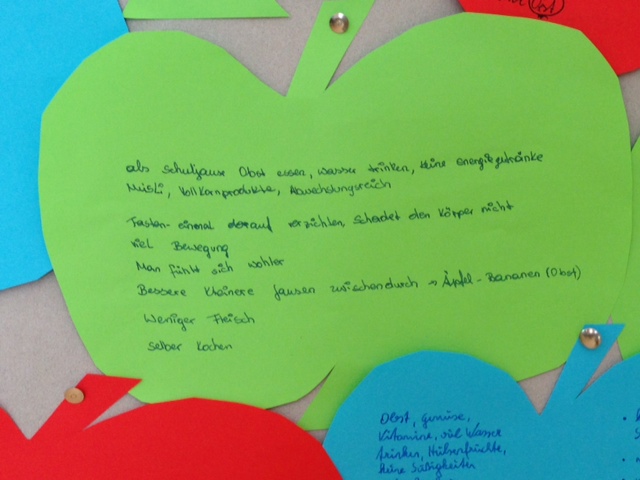 als Schuljause Obst essen, wasser trinken, keine energiegetränke
Müsli, Vollkornprodukte, Abwechslungsreich
Fasten- einmal darauf verzichten, Schadet den Körper nicht
viel Bewegung
Man fühlt sich wohler
Bessere Kleinere Jausen zwischendurch → Äpfel - Bananen (Obst)
Weniger Fleisch
selber Kochen
Obst
Obst, gemüse,
Vitamine, viel Wasser
trinken, Hülsenfrüchte,
keine Süßigkeiten